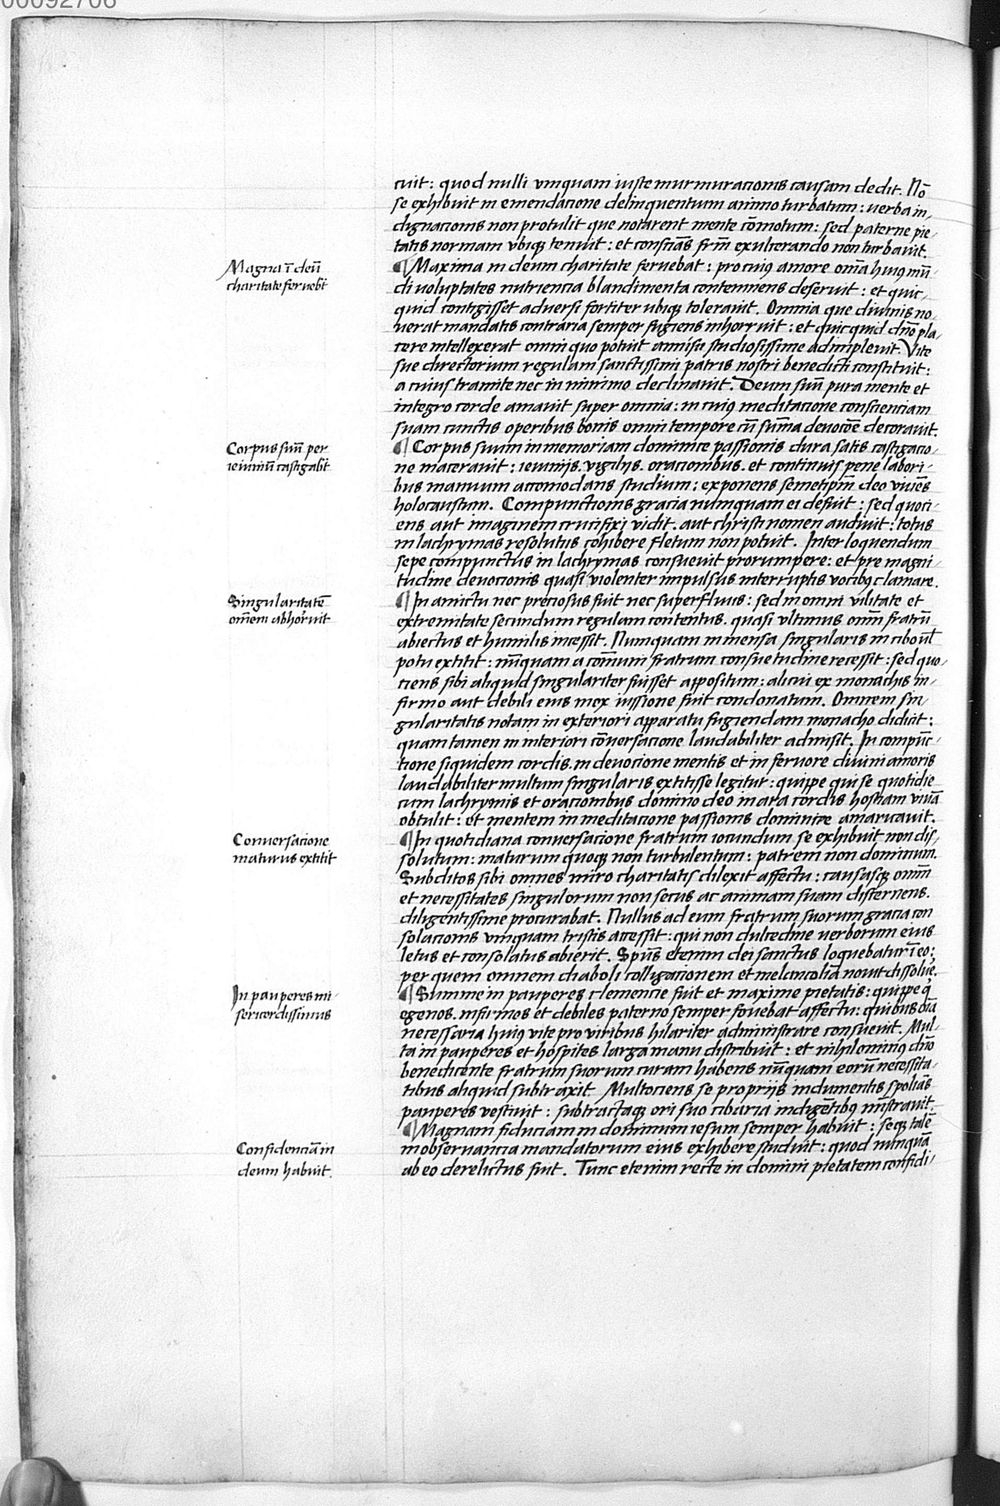 00092706
cuit: quod nulli vnquam iuste murmuracionis causam dedit. Nō
se exhibuit in emendacione delinquentum animo turbatum: uerba in,
dignacionis non protulit que notarent mente cōmotum: sed paterne pie,
tatis normam vbiqꝫ tenuit: et consciās frm̄ exulcerando non turbauit.
Magna ī deū
charitate feruebt
¶ Maxima in deum charitate feruebat: pro cuiꝰ amore om̄a huiꝰ mū,
di voluptates nutriencia blandimenta contemnens deseruit: et quic,
quid contigisset aduersi fortiter ubiqꝫ tolerauit. Omnia que diuinis no,
uerat mandatis contraria semper fugiens inhorruit: et quicquid dn̄o pla,
cere intellexerat omni quo potuit annisu studiosissime adimpleuit. Vite
sue directorium regulam sanctissimi patris nostri benedicti constituit:
a cuius tramite nec in minimo declinauit. Deum suū pura mente et
integro corde amauit super omnia: in cuiꝰ meditacione conscienciam
suam cunctis operibus bonis omni tempore cū sūma deuocōe decorauit.
Corpus suū per
ieiuniū castigabt
¶ Corpus suum in memoriam dominice passionis dura satis castigacio,
ne macerauit: ieiunijs. vigilijs. oracionibus. et continuis pene labori,
bus manuum accomodans studium: exponens semetipm̄ deo viuēs
holocaustum. Compunctionis gracia numquam ei defuit: sed quoci,
ens aut imaginem crucifixi vidit. aut christi nomen audiuit: totus
in lachrymas resolutus cohibere fletum non potuit. Inter loquendum
sepe compunctus in lachrymas consueuit prorumpere: et pre magni,
tudine deuocionis quasi violenter impulsus interruptis vocibꝰ clamare.
Singularitatē
om̄em abhorruit
¶ In amictu nec preciosus fuit nec superfluus: sed in omni vilitate et
extremitate secundum regulam contentus. quasi vltimus om̄m fratrū
abiectus et humilis incessit. Numquam in mensa singularis in cibo ul̄
potu extitit: nūquam a com̄uni fratrum consuetudine recessit: sed quo,
ciens sibi aliquid singulariter fuisset appositum: alicui ex monachis in,
firmo aut debili eius mox iussione fuit condonatum. Omnem sin
gularitatis notam in exteriori apparatu fugiendam monacho didicit:
quam tamen in interiori cōuersacione laudabiliter admisit. In compūc,
tione siquidem cordis. in deuocione mentis et in feruore diuini amoris
laudabiliter multum singularis extitisse legitur: quippe qui se quotidie
cum lachrymis et oracionibus domino deo in ara cordis hostiam viuā
obtulit: et mentem in meditacione passionis dominice amaricauit.
Conuersacione
maturus extitit
¶ In quotidiana conuersacione fratrum iocundum se exhibuit non dis,
solutum: maturum quoqꝫ non turbulentum: patrem non dominum.
Subditos sibi omnes miro charitatis dilexit affectu: causasqꝫ om̄m
et necessitates singulorum non secus ac animam suam discernens.
diligentissime procurabat. Nullus ad eum fratrum suorum gracia con
solacionis vmquam tristis accessit: qui non dulcedine uerborum eius
letus et consolatus abierit. Spūs etenim dei sanctus loquebatur ī eo:
per quem omnem diaboli colligacionem et melancoliā nouit dissolue.
In pauperes mi,
sericordissimus
¶ Summe in pauperes clemencie fuit et maxime pietatis: quippe q̄
egenos. infirmos et debiles paterno semper fouebat affectu: quibus oīa
necessaria huiꝰ vite pro viribus hilariter administrare consueuit. Mul,
ta in pauperes et hospites larga manu distribuit: et nihilominꝰ dn̄o
benedicente fratrum suorum curam habens nūquam eorū necessita,
tibus aliquid subtraxit. Multociens se proprijs indumentis spoliās
pauperes vestiuit: subtractaqꝫ ori suo cibaria indigētibꝰ mīstrauit.
Confidenciā in
deum habuit.
¶ Magnam fiduciam in dominum iesum semper habuit: seqꝫ talē
in obseruancia mandatorum eius exhibere studuit: quod nūnquā
ab eo derelictus fuit. Tunc etenim recte in domini pietatem confidi,